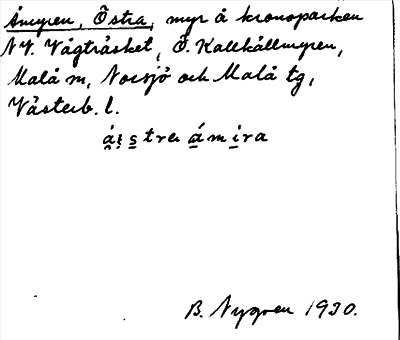 Åmyren, Östra, myr å kronoparken
NV. Vägträsket, Ö. Kallkällmyren,
Malå sn, Norsjö och Malå tg,
Västerb. l.
B. Nygren 1930.